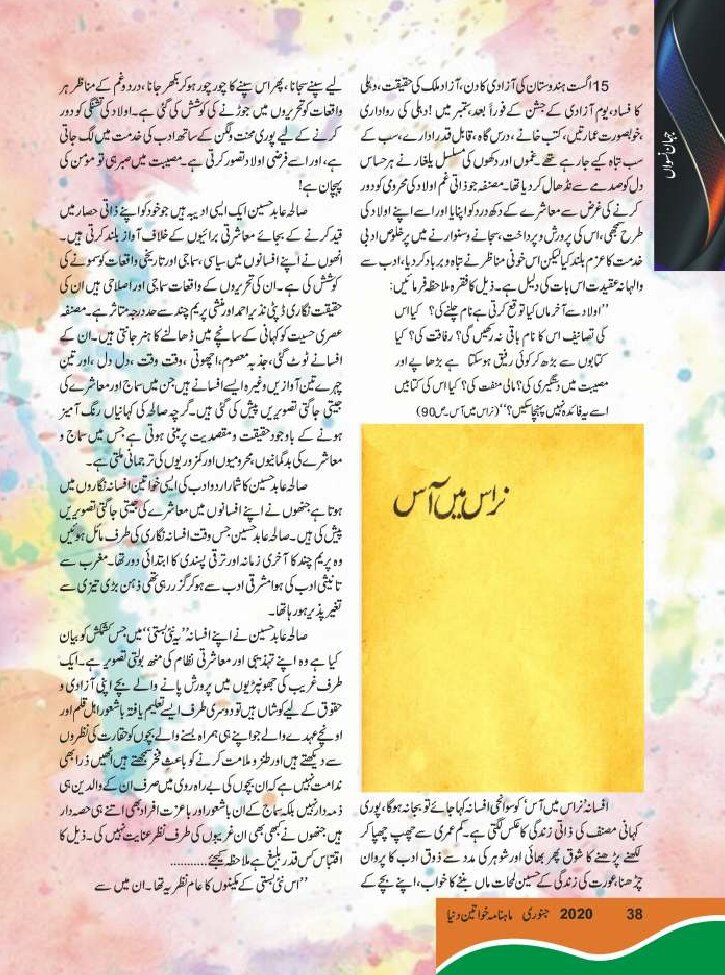 جہان نسواں
15 اگست ہندوستان کی آزادی کا دن، آزاد ملک کی حقیقت، دہلی
کا فساد، یوم آزادی کے جشن کے فوراً بعد، ستمبر میں! دہلی کی رواداری
،خوبصورت عمارتیں، کتب خانے، درس گاہ، قابل قدر ادارے، سب کے
سب تباہ کیے جا رہے تھے۔ غموں اور دکھوں کی مسلسل یلغار نے ہر حساس
دل کو صدمے سے نڈھال کر دیا تھا۔ مصنفہ جو ذاتی غم اولاد کی محرومی کو دور
کرنے کی غرض سے معاشرے کے دکھ درد کو اپنایا اور اسے اپنے اولاد کی
طرح سمجھی، اس کی پرورش و پرداخت، سجانے و سنوارنے میں پر خلوص ادبی
خدمت کا عزم بلند کیا لیکن اس خونی مناظر نے تباہ و برباد کر دیا، ادب سے
والہانہ عقیدت اس بات کی دلیل ہے۔ ذیل کا فقرہ ملاحظہ فرمائیں:
’’اولاد سے آخر ماں کیا توقع کرتی ہے نام چلنے کی؟ کیا اس
کی تصانیف اس کا نام باقی نہ رکھیں گی؟ رفاقت کی؟ کیا
کتابوں سے بڑھ کر کوئی رفیق ہو سکتا ہے بڑھاپے اور
مصیبت میں دستگیری کی؟ مالی منفعت کی؟ کیا اس کی کتابیں
اسے یہ فائدہ نہیں پہنچا سکیں؟‘‘ (نراس میں آس۔ص 90)
نراس میں آس
افسانہ ’نراس میں آس‘ کو سوانحی افسانہ کہا جائے تو بجا نہ ہوگا، پوری
کہانی مصنف کی ذاتی زندگی کا عکس لگتی ہے۔ کم عمری سے چھپ چھپا کر
لکھنے پڑھنے کا شوق پھر بھائی اور شوہر کی مدد سے ذوق ادب کا پروان
چڑھنا، عورت کی زندگی کے حسین لمحات ماں بننے کا خواب، اپنے بچے کے
لیے سپنے سجانا، پھر اس سپنے کا چور چور ہو کر بکھر جانا، درد و غم کے مناظر ہر
واقعات کو تحریروں میں جوڑنے کی کوشش کی گئی ہے۔ اولاد کی تشنگی کو دور
کرنے کے لیے پوری محنت ولگن کے ساتھ ادب کی خدمت میں لگ جاتی
ہے، اور اسے فرضی اولاد تصور کرتی ہے۔ مصیبت میں صبر ہی تو مؤمن کی
پہچان ہے!
صالحہ عابد حسین ایک ایسی ادیبہ ہیں جو خود کو اپنے ذاتی حصار میں
قید کرنے کے بجائے معاشرتی برائیوں کے خلاف آواز بلند کرتی ہیں۔
انھوں نے اپنے افسانوں میں سیاسی، سماجی اور تاریخی واقعات کو سمونے کی
کوشش کی ہے۔ ان کی تحریروں کے واقعات سماجی اور اصلاحی ہیں ان کی
حقیقت نگاری ڈپٹی نذیر احمد اور منشی پریم چند سے حد درجہ متاثر ہے۔ مصنفہ
عصری حسیت کو کہانی کے سانچے میں ڈھالنے کا ہنر جانتی ہیں۔ ان کے
افسانے ٹوٹ گئی، جذبہ معصوم، اچھوتی، وقت وقت، دل دل، اور تین
چہرے تین آوازیں وغیرہ ایسے افسانے ہیں جن میں سماج اور معاشرے کی
جیتی جاگتی تصویریں پیش کی گئی ہیں۔ گرچہ صالحہ کی کہانیاں رنگ آمیز
ہونے کے باوجود حقیقت و مقصدیت پر مبنی ہوتی ہے جس میں سماج و
معاشرے کی بدگمانیوں، محرومیوں اور کمزوریوں کی ترجمانی ملتی ہے۔
صالحہ عابد حسین کا شمار اردو ادب کی ایسی خواتین افسانہ نگاروں میں
ہوتا ہے جنھوں نے اپنے افسانوں میں معاشرے کی جیتی جاگتی تصویریں
پیش کی ہیں۔ صالحہ عابد حسین جس وقت افسانہ نگاری کی طرف مائل ہوئیں
وہ پریم چند کا آخری زمانہ اور ترقی پسندی کا ابتدائی دور تھا۔ مغرب سے
تانیثی ادب کی ہوا مشرقی ادب سے ہو کر گزر رہی تھی ذہن بڑی تیزی سے
تغیر پذیر ہو رہا تھا۔
صالحہ عابد حسین نے اپنے افسانہ ’’یہ نئی بستی‘‘ میں جس کشمکش کو بیان
کیا ہے وہ اپنے تہذیبی اور معاشرتی نظام کی منھ بولتی تصویر ہے۔ ایک
طرف غریب کی جھونپڑیوں میں پرورش پانے والے بچے اپنی آزادی و
حقوق کے لیے کوشاں ہیں تو دوسری طرف ایسے تعلیم یافتہ باشعور اہل قلم اور
اونچے عہدے والے جو اپنے ہی ہمراہ بسنے والے بچوں کو حقارت کی نظروں
سے دیکھتے ہیں اور طنز و ملامت کرنے کو باعث فخر سمجھتے ہیں انھیں ذرا بھی
ندامت نہیں ہے کہ ان بچوں کی بے راہ روی میں صرف ان کے والدین ہی
ذمہ دار نہیں بلکہ سماج کے ان باشعور اور باعزت افراد بھی اتنے ہی حصہ دار
ہیں جنھوں نے کبھی بھی ان غریبوں کی طرف نظر عنایت نہیں کی۔ ذیل کا
اقتباس کس قدر بلیغ ہے ملاحظہ کیجئے............
’’اس نئی بستی کے مکینوں کا عام نظریہ تھا۔ ان میں سے
38 2020 جنوری ماہنامہ خواتین دنیا